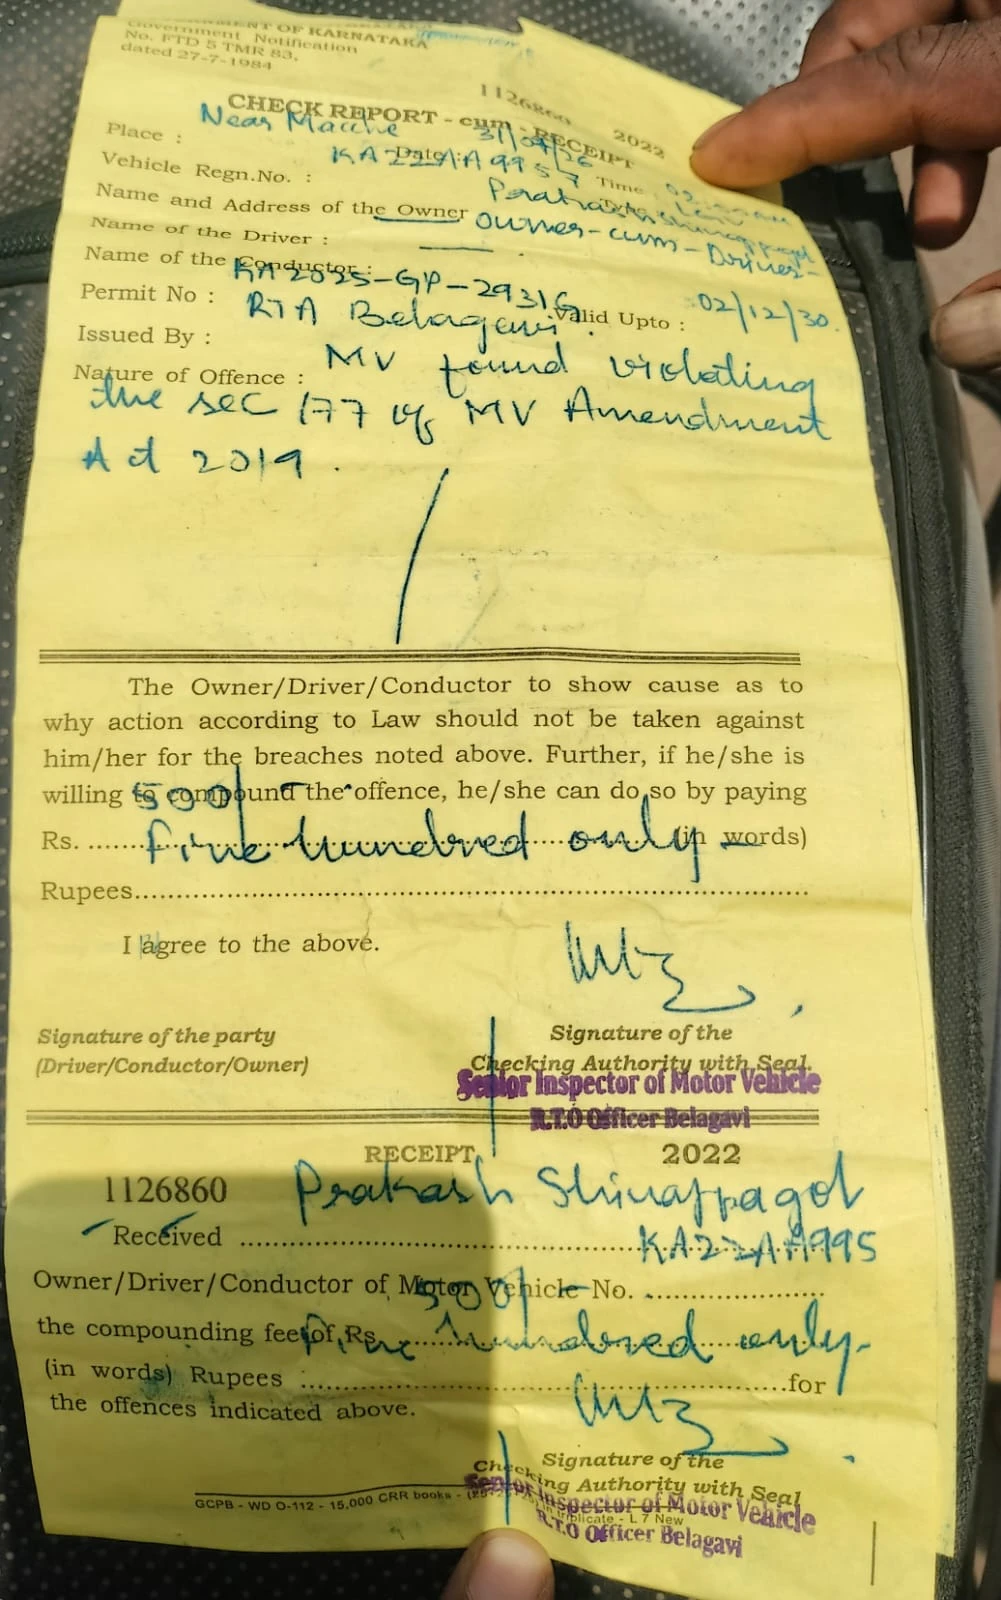 GOVERNMENT OF KARNATAKA
Government Notification
No. FTD 5 TMR 83,
dated 27-7-1984
1126860 2022
CHECK REPORT - cum - RECEIPT
Place : Near Macche Date : 31/07/26 Time
Vehicle Regn.No. : KA22AA9957
Name and Address of the Owner
Name of the Driver : Owner-cum-Driver-
Name of the Conductor : —
Permit No : KA2025-GP-2931G Valid Upto : 02/12/30.
Issued By : RTA Belagavi.
Nature of Offence : MV found violating
the sec 177 of MV Amendment
Act 2019.
The Owner/Driver/Conductor to show cause as to
why action according to Law should not be taken against
him/her for the breaches noted above. Further, if he/she is
willing to compound the offence, he/she can do so by paying
Rs. 500/- (in words)
Rupees Five hundred only —
I agree to the above.
Signature of the party
(Driver/Conductor/Owner)
Signature of the
Checking Authority with Seal
Senior Inspector of Motor Vehicle
R.T.O Officer Belagavi
RECEIPT 2022
1126860
Received Prakash
Owner/Driver/Conductor of Motor Vehicle No. KA22AA995
the compounding fee of Rs. 500/-
(in words) Rupees Five hundred only- for
the offences indicated above.
Signature of the
Checking Authority with Seal
Senior Inspector of Motor Vehicle
R.T.O Officer Belagavi
GCPB - WD O-112 - 15,000 CRR books - in triplicate - L 7 New